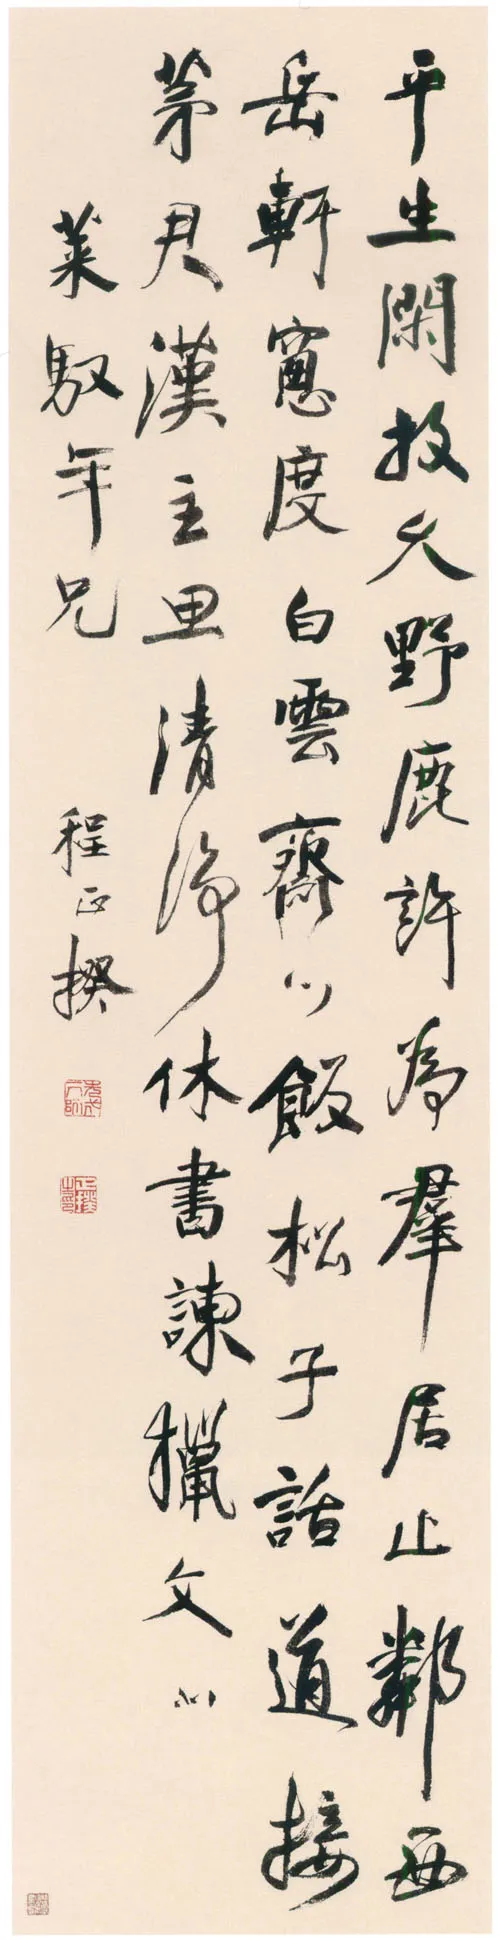 平生閑放久野鹿許為羣居止鄰西
岳軒窻度白雲齋心飯松子話道接
茅君漢主思清淨休書諫獵文似
萊馭年兄 程正揆